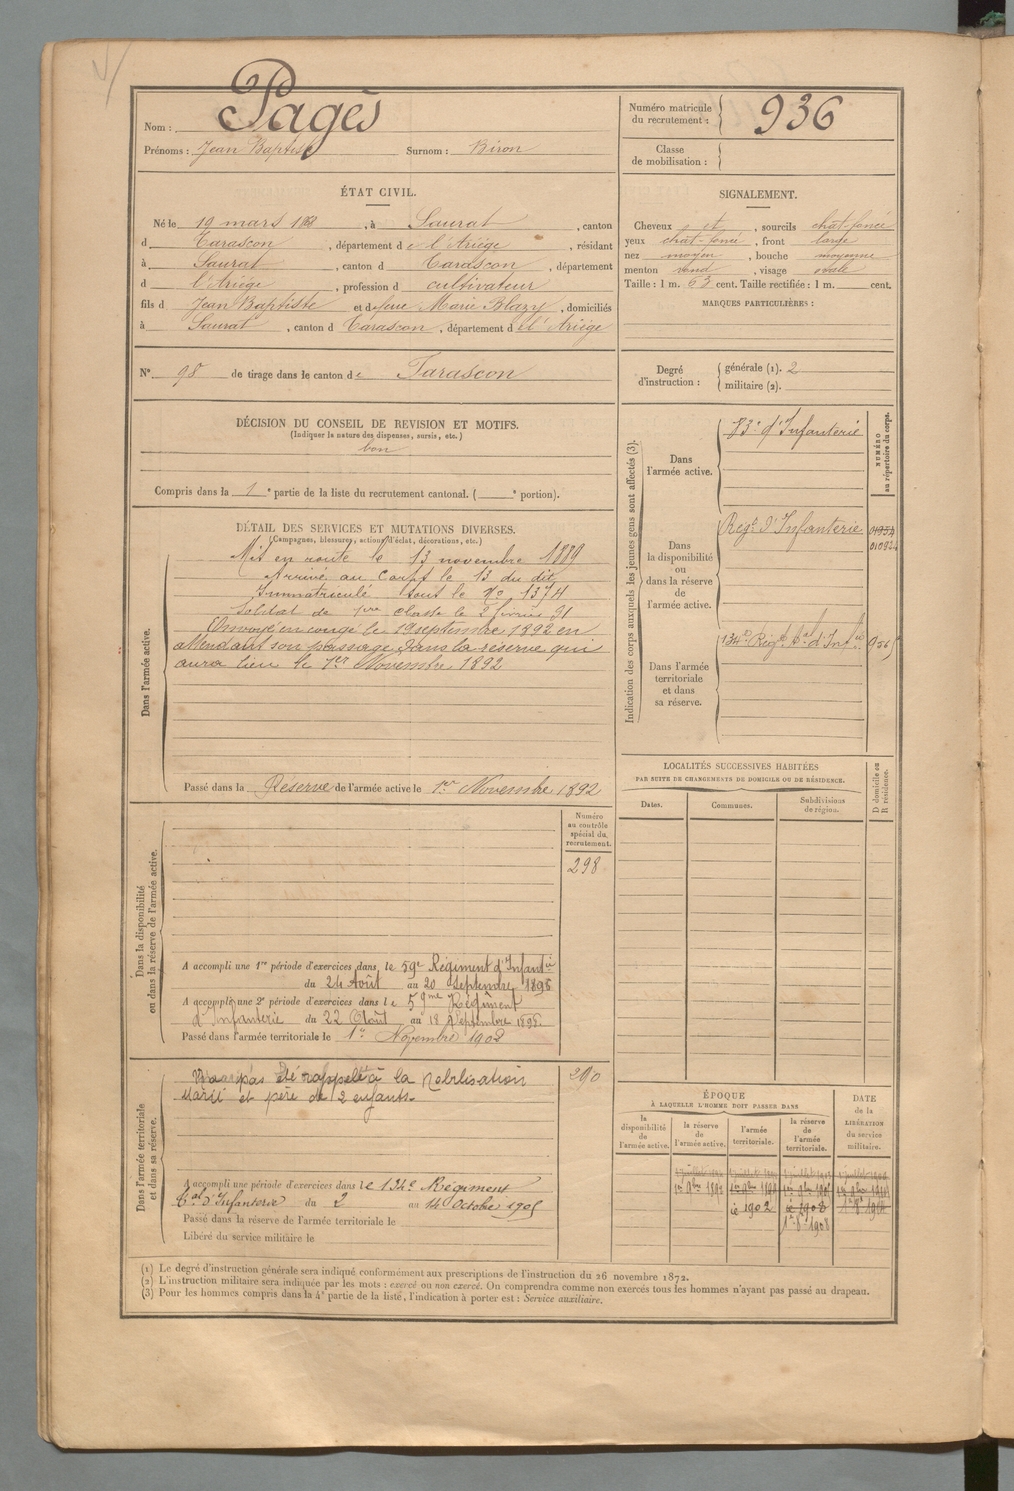 Nom : Pagès
Prénoms : Jean Baptiste Surnom : Biron
Numéro matricule du recrutement : 936
Classe de mobilisation :
ÉTAT CIVIL.
Né le 19 mars 1868, à Saurat, canton
d Tarascon, département de l'Ariège, résidant
à Saurat, canton d Tarascon, département
d l'Ariège, profession d cultivateur
fils d Jean Baptiste et d feue Marie Blazy, domiciliés
à Saurat, canton d Tarascon, département d l'Ariège
SIGNALEMENT.
Cheveux et, sourcils chat-foncé
yeux chat-foncé, front large
nez moyen, bouche moyenne
menton rond, visage ovale
Taille : 1 m. 63 cent. Taille rectifiée : 1 m. cent.
MARQUES PARTICULIÈRES :
N° 98 de tirage dans le canton de Tarascon
Degré d'instruction : générale (1). 2
militaire (2).
DÉCISION DU CONSEIL DE REVISION ET MOTIFS.
(Indiquer la nature des dispenses, sursis, etc.)
bon
Compris dans la 1e partie de la liste du recrutement cantonal. ( e portion).
DÉTAIL DES SERVICES ET MUTATIONS DIVERSES.
(Campagnes, blessures, actions d'éclat, décorations, etc.)
Dans l'armée active.
Mis en route le 13 novembre 1889
Arrivé au Corps le 13 du dit,
Immatriculé sous le No 1374
Soldat de 1re classe le 2 février 91
Envoyé en congé le 19 septembre 1892 en
attendant son passage dans la réserve qui
aura lieu le 1er Novembre 1892
Passé dans la Réserve de l'armée active le 1er Novembre 1892
Indication des corps auxquels les jeunes gens sont affectés (3).
NUMÉRO au répertoire du corps.
Dans l'armée active.
83e d'Infanterie
Dans la disponibilité ou dans la réserve de l'armée active.
Regt d'Infanterie
Dans l'armée territoriale et dans sa réserve.
134e Régt tal d'Infie
LOCALITÉS SUCCESSIVES HABITÉES
PAR SUITE DE CHANGEMENTS DE DOMICILE OU DE RÉSIDENCE.
Dates. Communes. Subdivisions de région. D domicile ou R résidence.
Dans la disponibilité ou dans la réserve de l'armée active.
Numéro au contrôle spécial du recrutement.
298
A accompli une 1re période d'exercices dans le 59e Régiment d'Infantie
du 24 Août au 20 Septembre 1895
A accompli une 2e période d'exercices dans le 59me Régiment
d'Infanterie du 22 Août au 18 Septembre 1898
Passé dans l'armée territoriale le 1er Novembre 1902
Dans l'armée territoriale et dans sa réserve.
N'a pas été rappelé à la Mobilisation
Marié et père de 2 enfants.
290
A accompli une période d'exercices dans le 134e Régiment
tal d'Infanterie du 2 au 14 Octobre 1905
Passé dans la réserve de l'armée territoriale le
Libéré du service militaire le
ÉPOQUE
À LAQUELLE L'HOMME DOIT PASSER DANS
la disponibilité de l'armée active. la réserve de l'armée active. l'armée territoriale. la réserve de l'armée territoriale.
DATE de la LIBÉRATION du service militaire.
(1) Le degré d'instruction générale sera indiqué conformément aux prescriptions de l'instruction du 26 novembre 1872.
(2) L'instruction militaire sera indiquée par les mots : exercé ou non exercé. On comprendra comme non exercés tous les hommes n'ayant pas passé au drapeau.
(3) Pour les hommes compris dans la 4e partie de la liste, l'indication à porter est : Service auxiliaire.